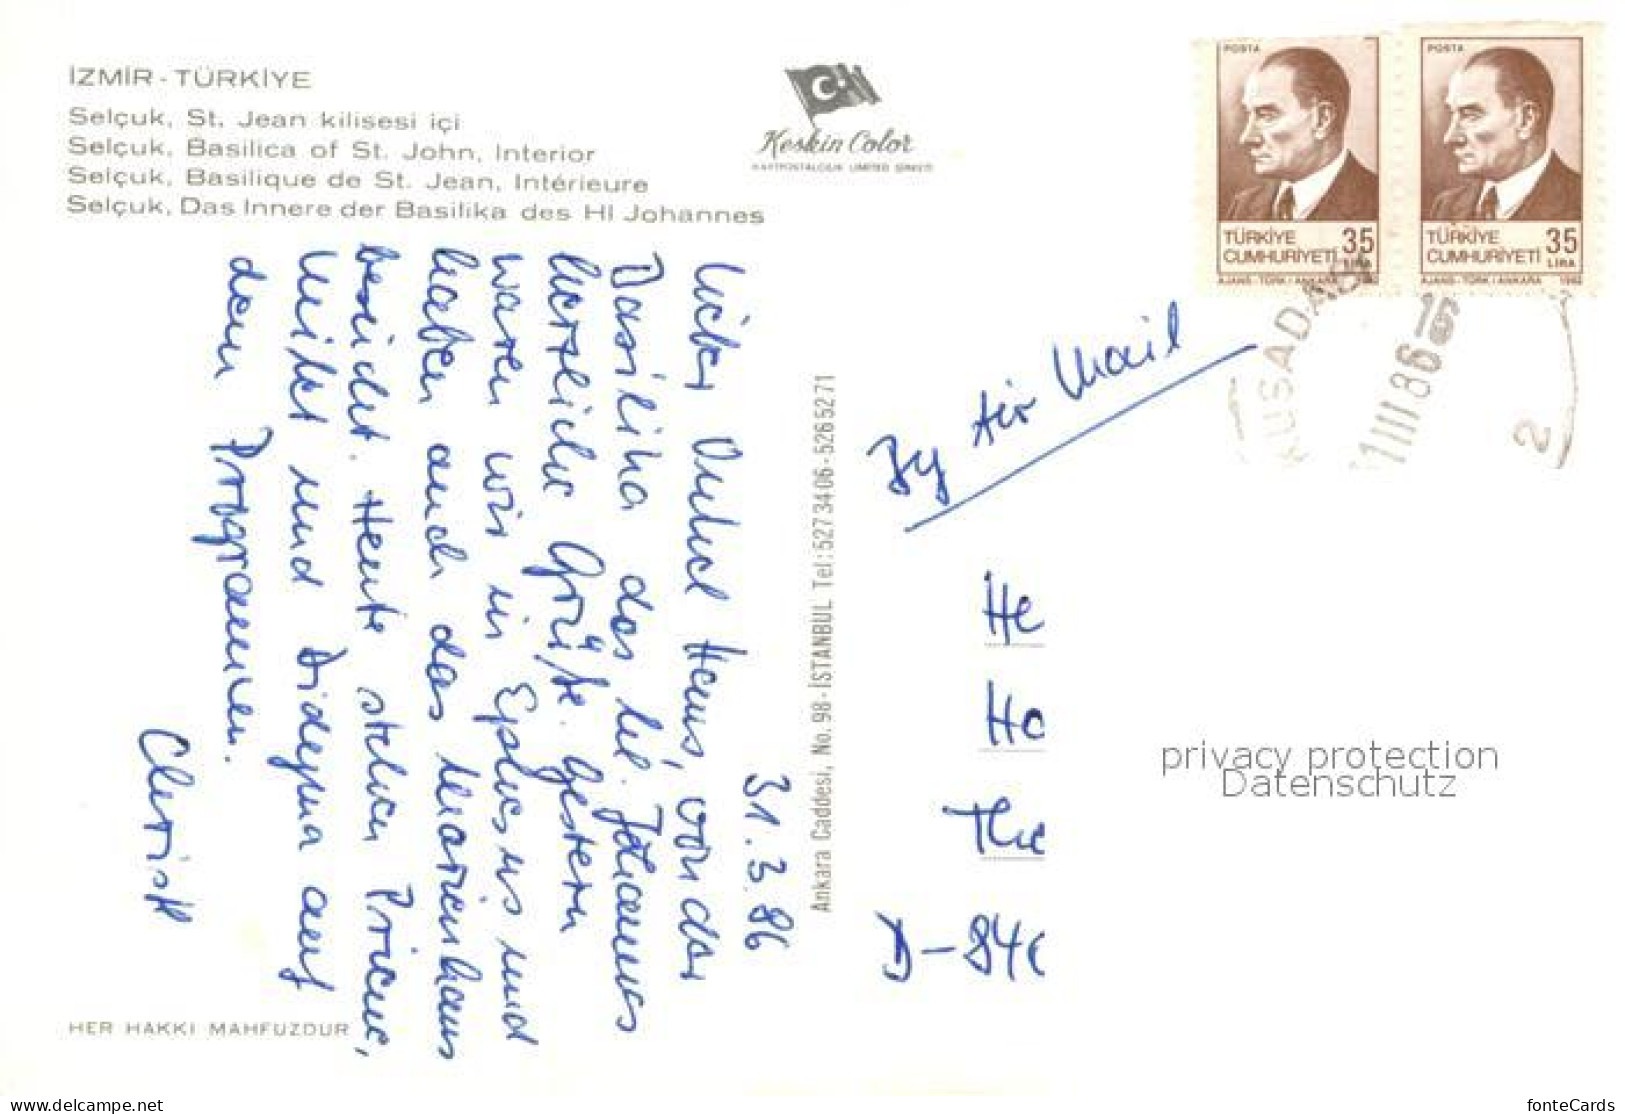 İZMİR - TÜRKİYE
Selçuk, St. Jean kilisesi içi
Selçuk, Basilica of St. John, Interior
Selçuk, Basilique de St. Jean, Intérieure
Selçuk, Das Innere der Basilika des Hl Johannes
Keskin Color
KARTPOSTALCILIK LIMITED ŞİRKETİ
POSTA
TÜRKİYE
CUMHURİYETİ
35
LİRA
AJANS-TÜRK / ANKARA
POSTA
TÜRKİYE
CUMHURİYETİ
35
LİRA
AJANS-TÜRK / ANKARA 1982
KUSADASI
15
III 86
2
31.3.86
Lieber Onkel Hans, von der
Basilika des hl. Johannes
herzliche Grüße. Gestern
waren wir in Ephesus und
haben auch das Marienhaus
besucht. Heute stehen Priene,
Milet und Didyma auf
dem Programm.
Ankara Caddesi, No. 98 - İSTANBUL Tel: 527 34 06 - 526 52 71
By Air Mail
He
Ho
D-84
privacy protection
Datenschutz
HER HAKKI MAHFUZDUR
https://www.delcampe.net
fonteCards